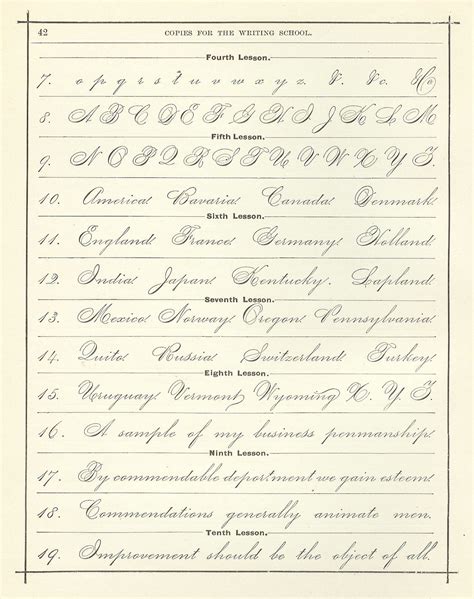 42 COPIES FOR THE WRITING SCHOOL.
Fourth Lesson.
7. o p q r s t u v w x y z &. &c. Co
8. A B C D E F G H I J K L M
Fifth Lesson.
9. N O P Q R S T U V W X Y Z
10. America Bavaria Canada Denmark
Sixth Lesson.
11. England France Germany Holland
12. India Japan Kentucky. Lapland
Seventh Lesson.
13. Mexico Norway Oregon Pennsylvania
14. Quito Russia Switzerland Turkey
Eighth Lesson.
15. Uruguay Vermont Wyoming X. Y. Z.
16. A sample of my business penmanship.
Ninth Lesson.
17. By commendable deportment we gain esteem.
18. Commendations generally animate men.
Tenth Lesson.
19. Improvement should be the object of all.